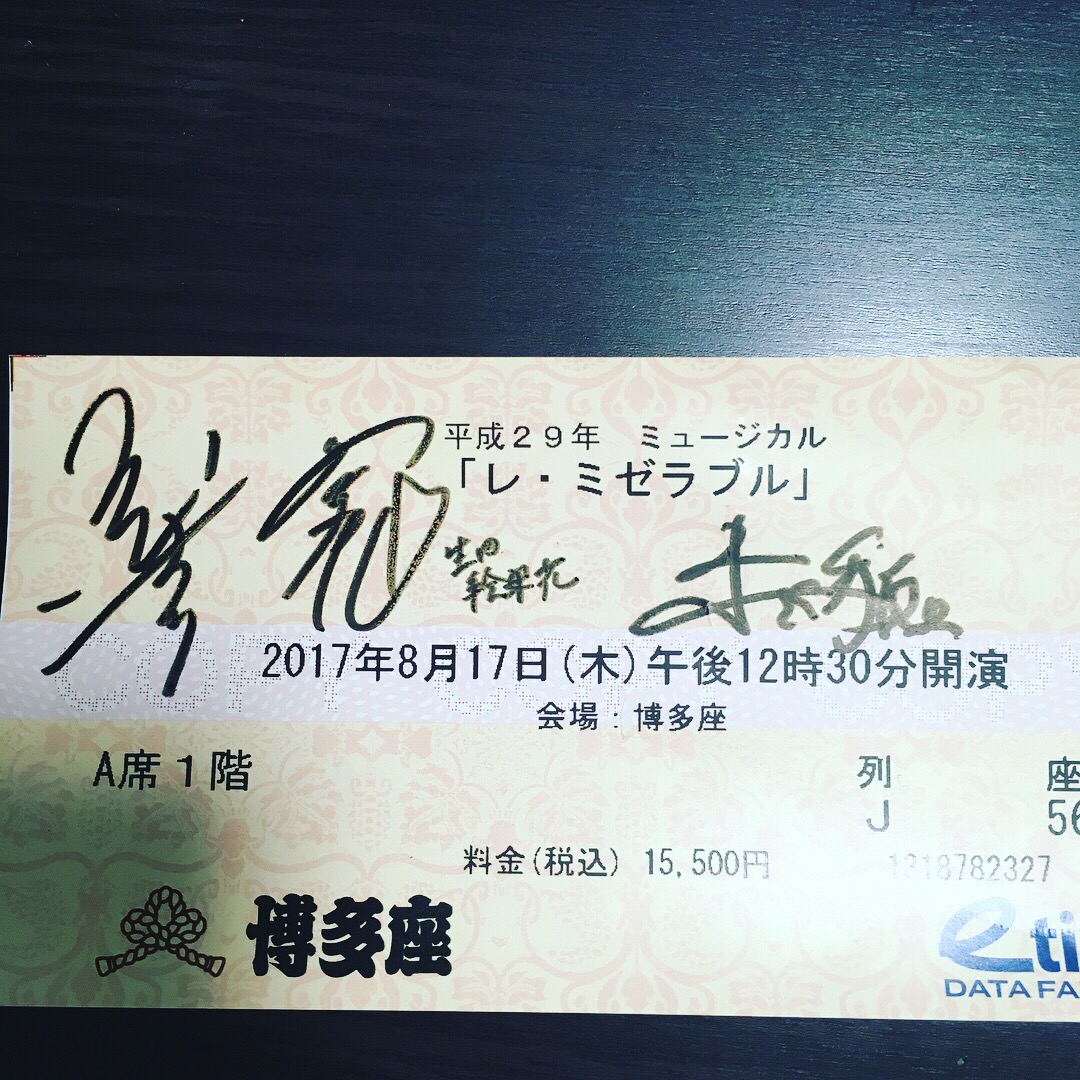 平成２９年　ミュージカル
「レ・ミゼラブル」
生田
絵梨花
2017年8月17日(木)午後12時30分開演
会場：博多座
A席１階
列 座
J 56
料金(税込) 15,500円 1318782327
博多座
eti
DATA FA